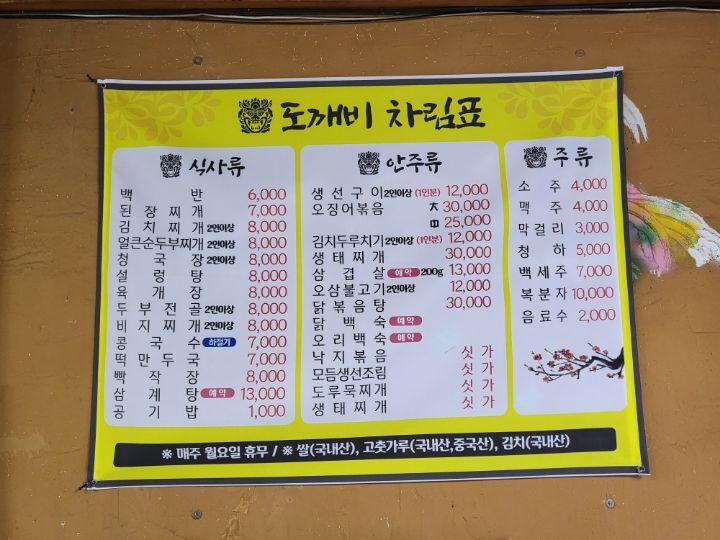 도깨비 차림표
식사류
백반 6,000
된장찌개 7,000
김치찌개 2인이상 8,000
얼큰순두부찌개 2인이상 8,000
청국장 2인이상 8,000
설렁탕 8,000
육개장 8,000
두부전골 2인이상 8,000
비지찌개 2인이상 8,000
콩국수 하절기 7,000
떡만두국 7,000
빡작장 8,000
삼계탕 예약 13,000
공기밥 1,000
안주류
생선구이 2인이상 (1인분) 12,000
오징어볶음 大 30,000
中 25,000
김치두루치기 2인이상 (1인분) 12,000
생태찌개 30,000
삼겹살 예약 200g 13,000
오삼불고기 2인이상 12,000
닭볶음탕 30,000
닭백숙 예약
오리백숙 예약
낙지볶음 싯가
모듬생선조림 싯가
도루묵찌개 싯가
생태찌개 싯가
주류
소주 4,000
맥주 4,000
막걸리 3,000
청하 5,000
백세주 7,000
복분자 10,000
음료수 2,000
※ 매주 월요일 휴무 / ※ 쌀(국내산), 고춧가루(국내산,중국산), 김치(국내산)